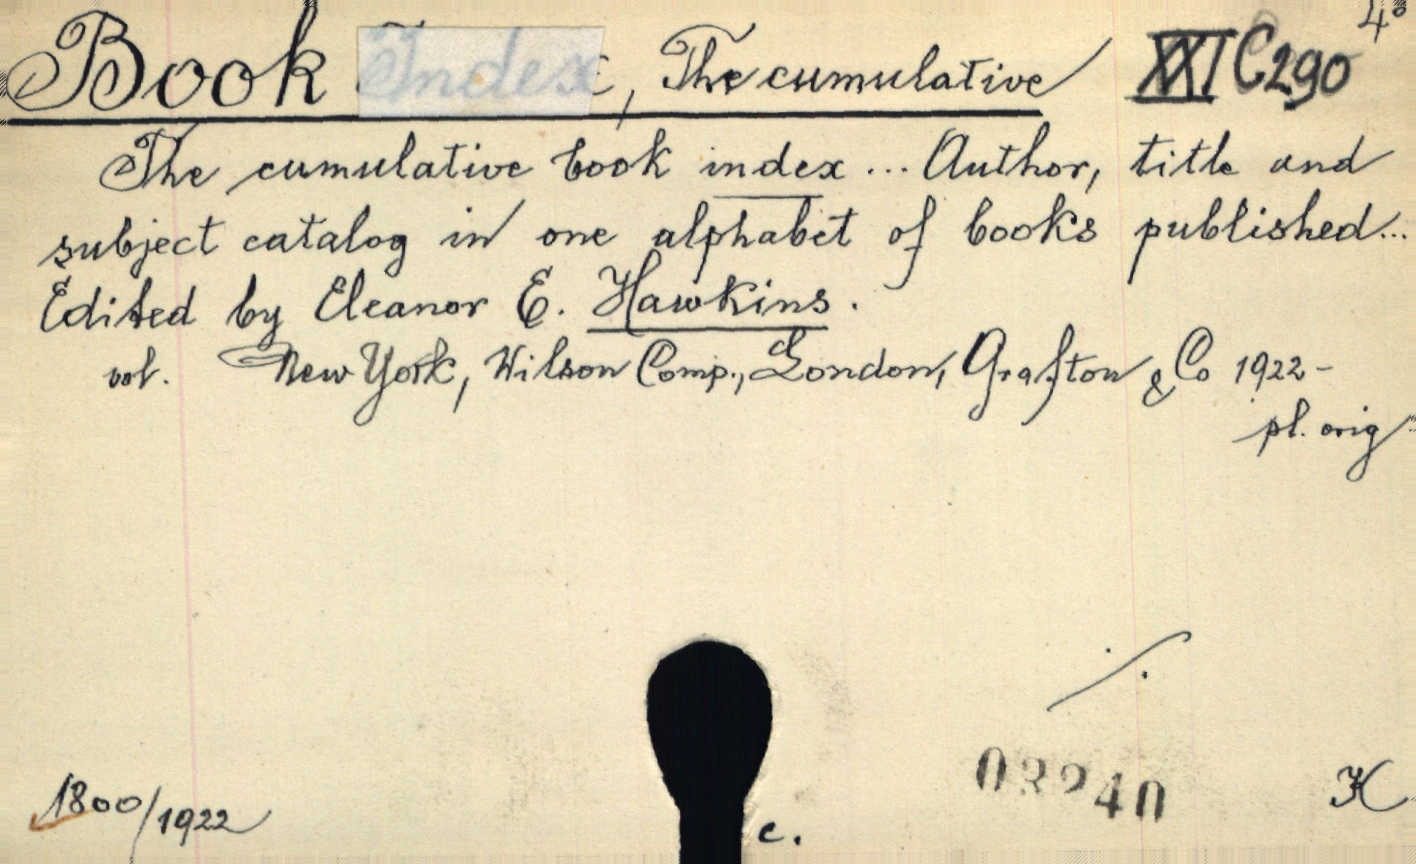 4°
Book Index, The cumulative XXI C290
The cumulative book index ... Author, title and
subject catalog in one alphabet of books published...
Edited by Eleanor E. Hawkins.
vol. New York, Wilson Comp., London, Grafton & Co 1922-
pl. orig
03240
K
1800/1922
c.